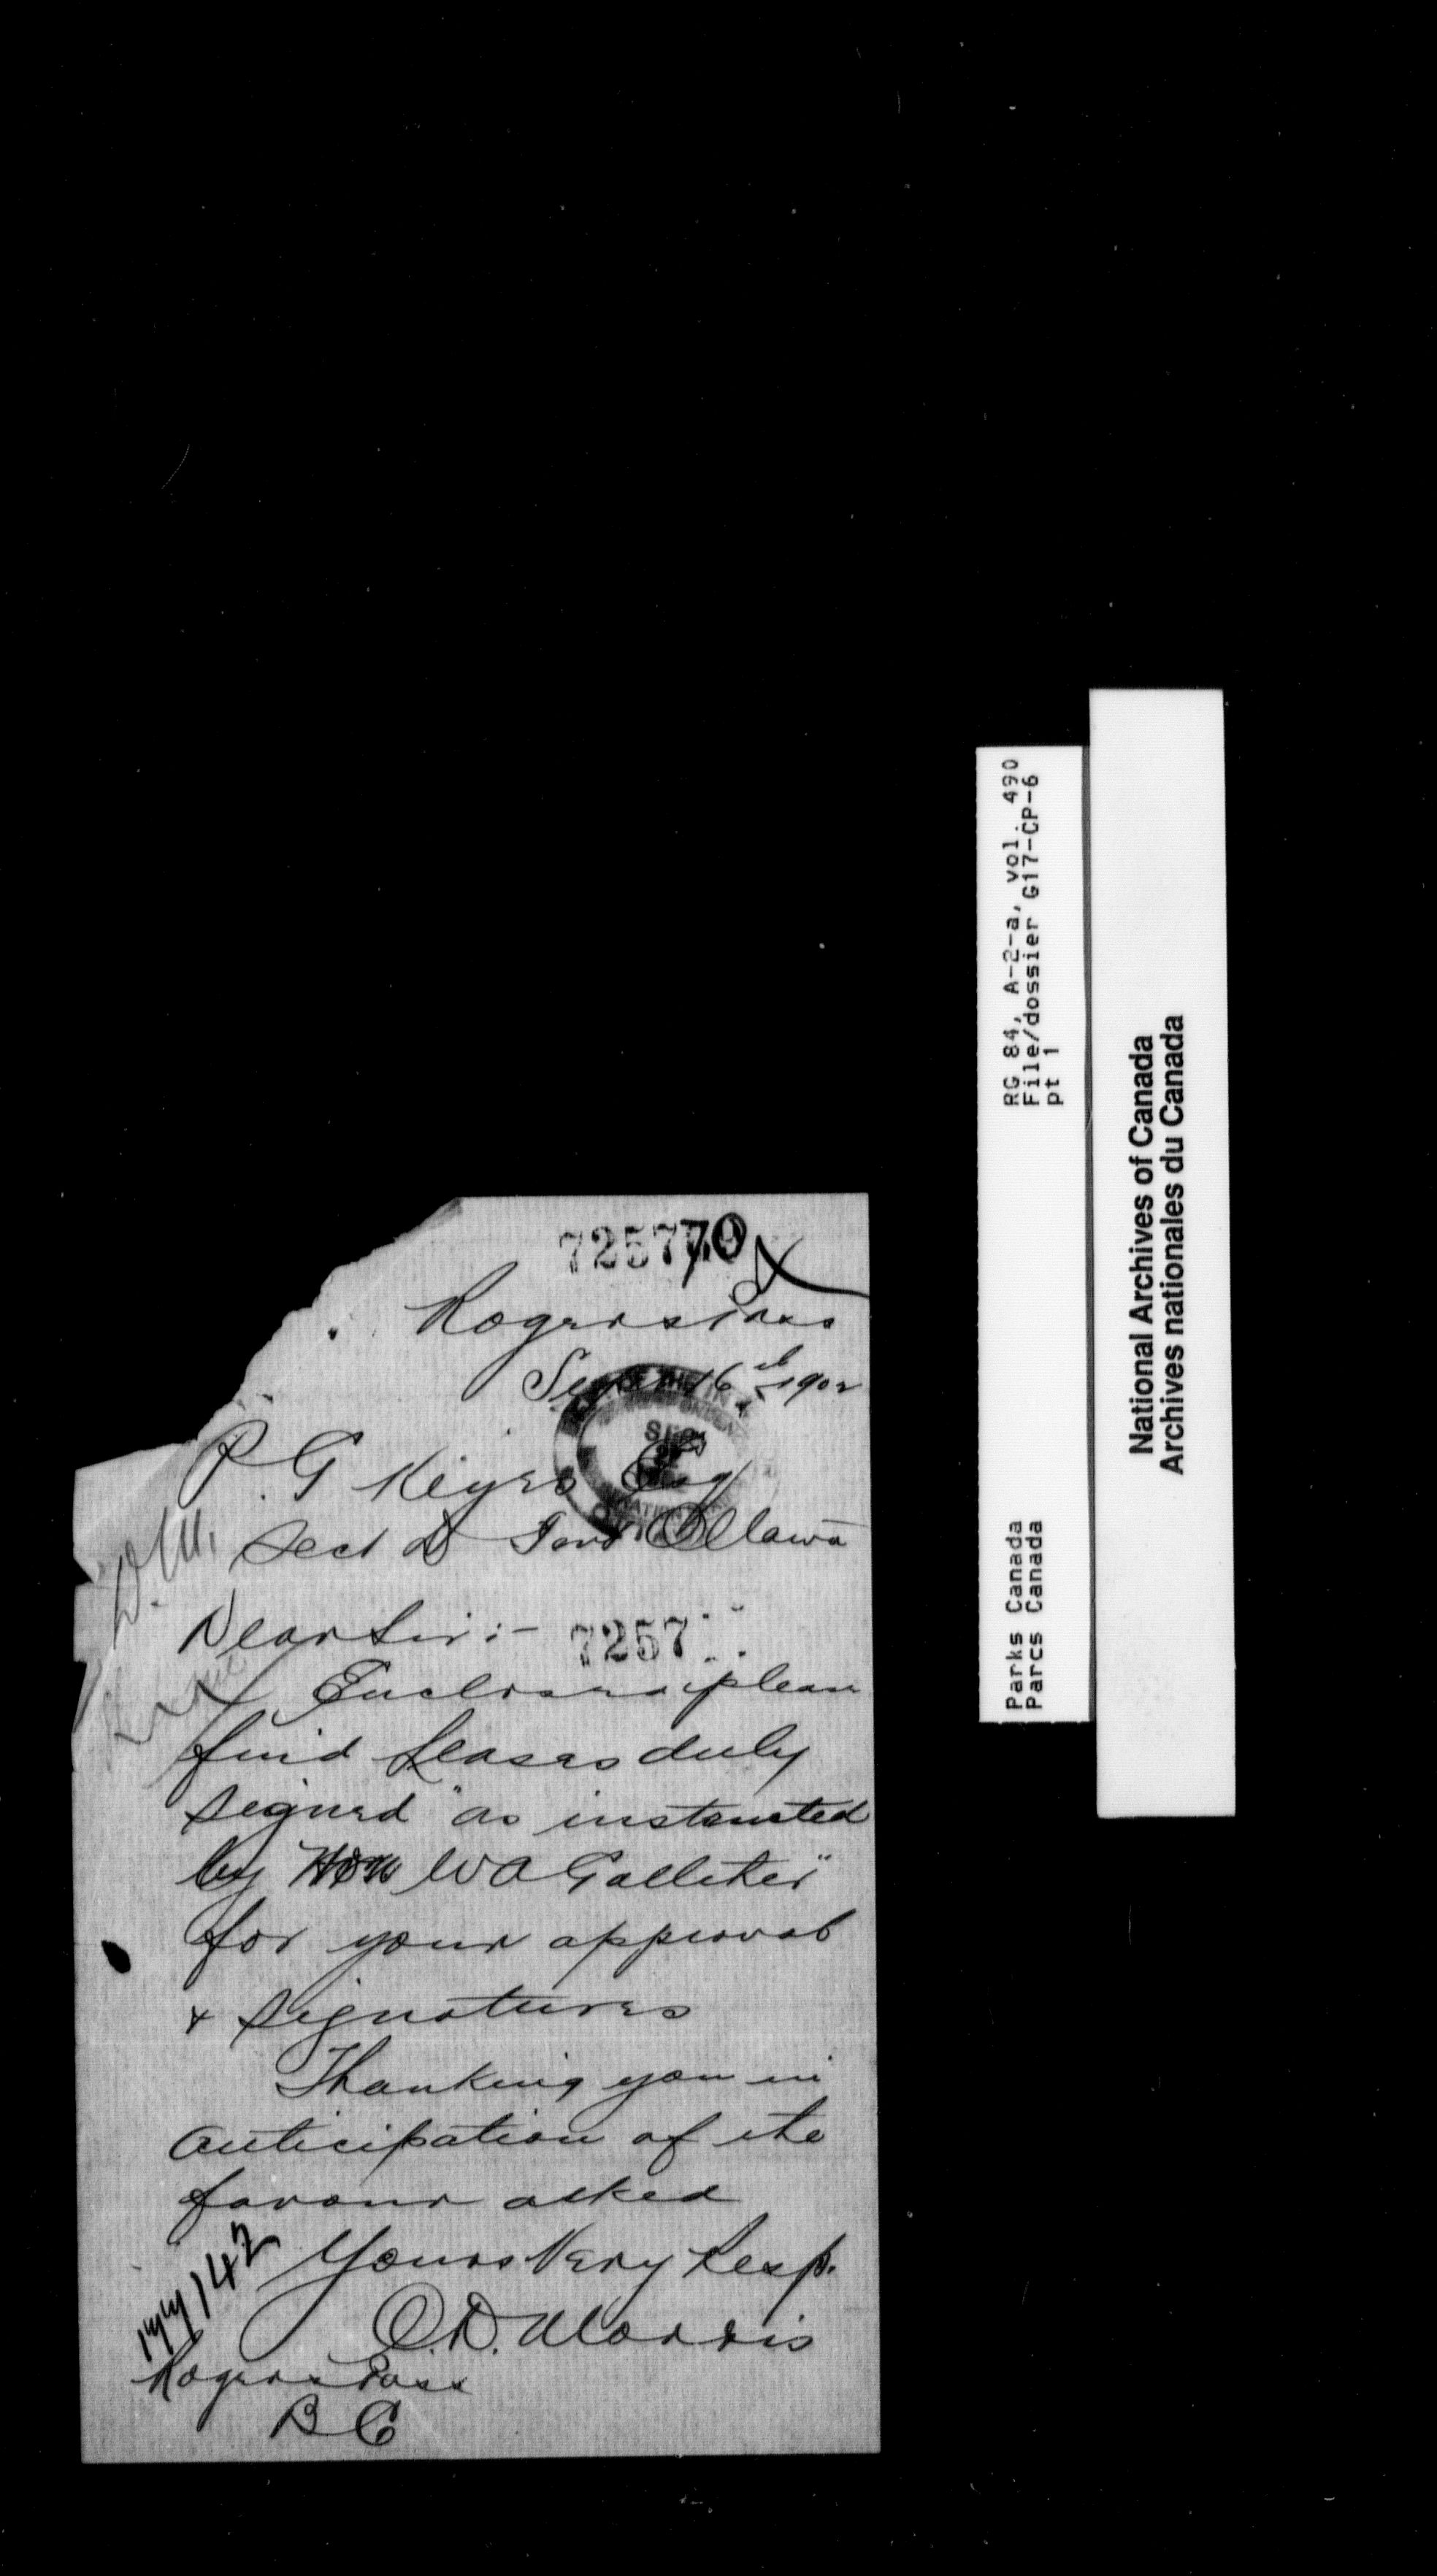 725770
Rogers Pass
Sept 16th 1902
P. G Keyes Esq
Sect D Ottawa
Dear Sir :-
7257
Enclosed please
find leases duly
signed "as instructed
by Hon W A Galliher"
for your approval
& signatures
Thanking you in
anticipation of the
favour asked
Yours Very Resp.
O.D. Morris
Rogers Pass
B C
RG 84, A-2-a, vol. 490
File/dossier G17-CP-6
pt 1
Parks Canada
Parcs Canada
National Archives of Canada
Archives nationales du Canada